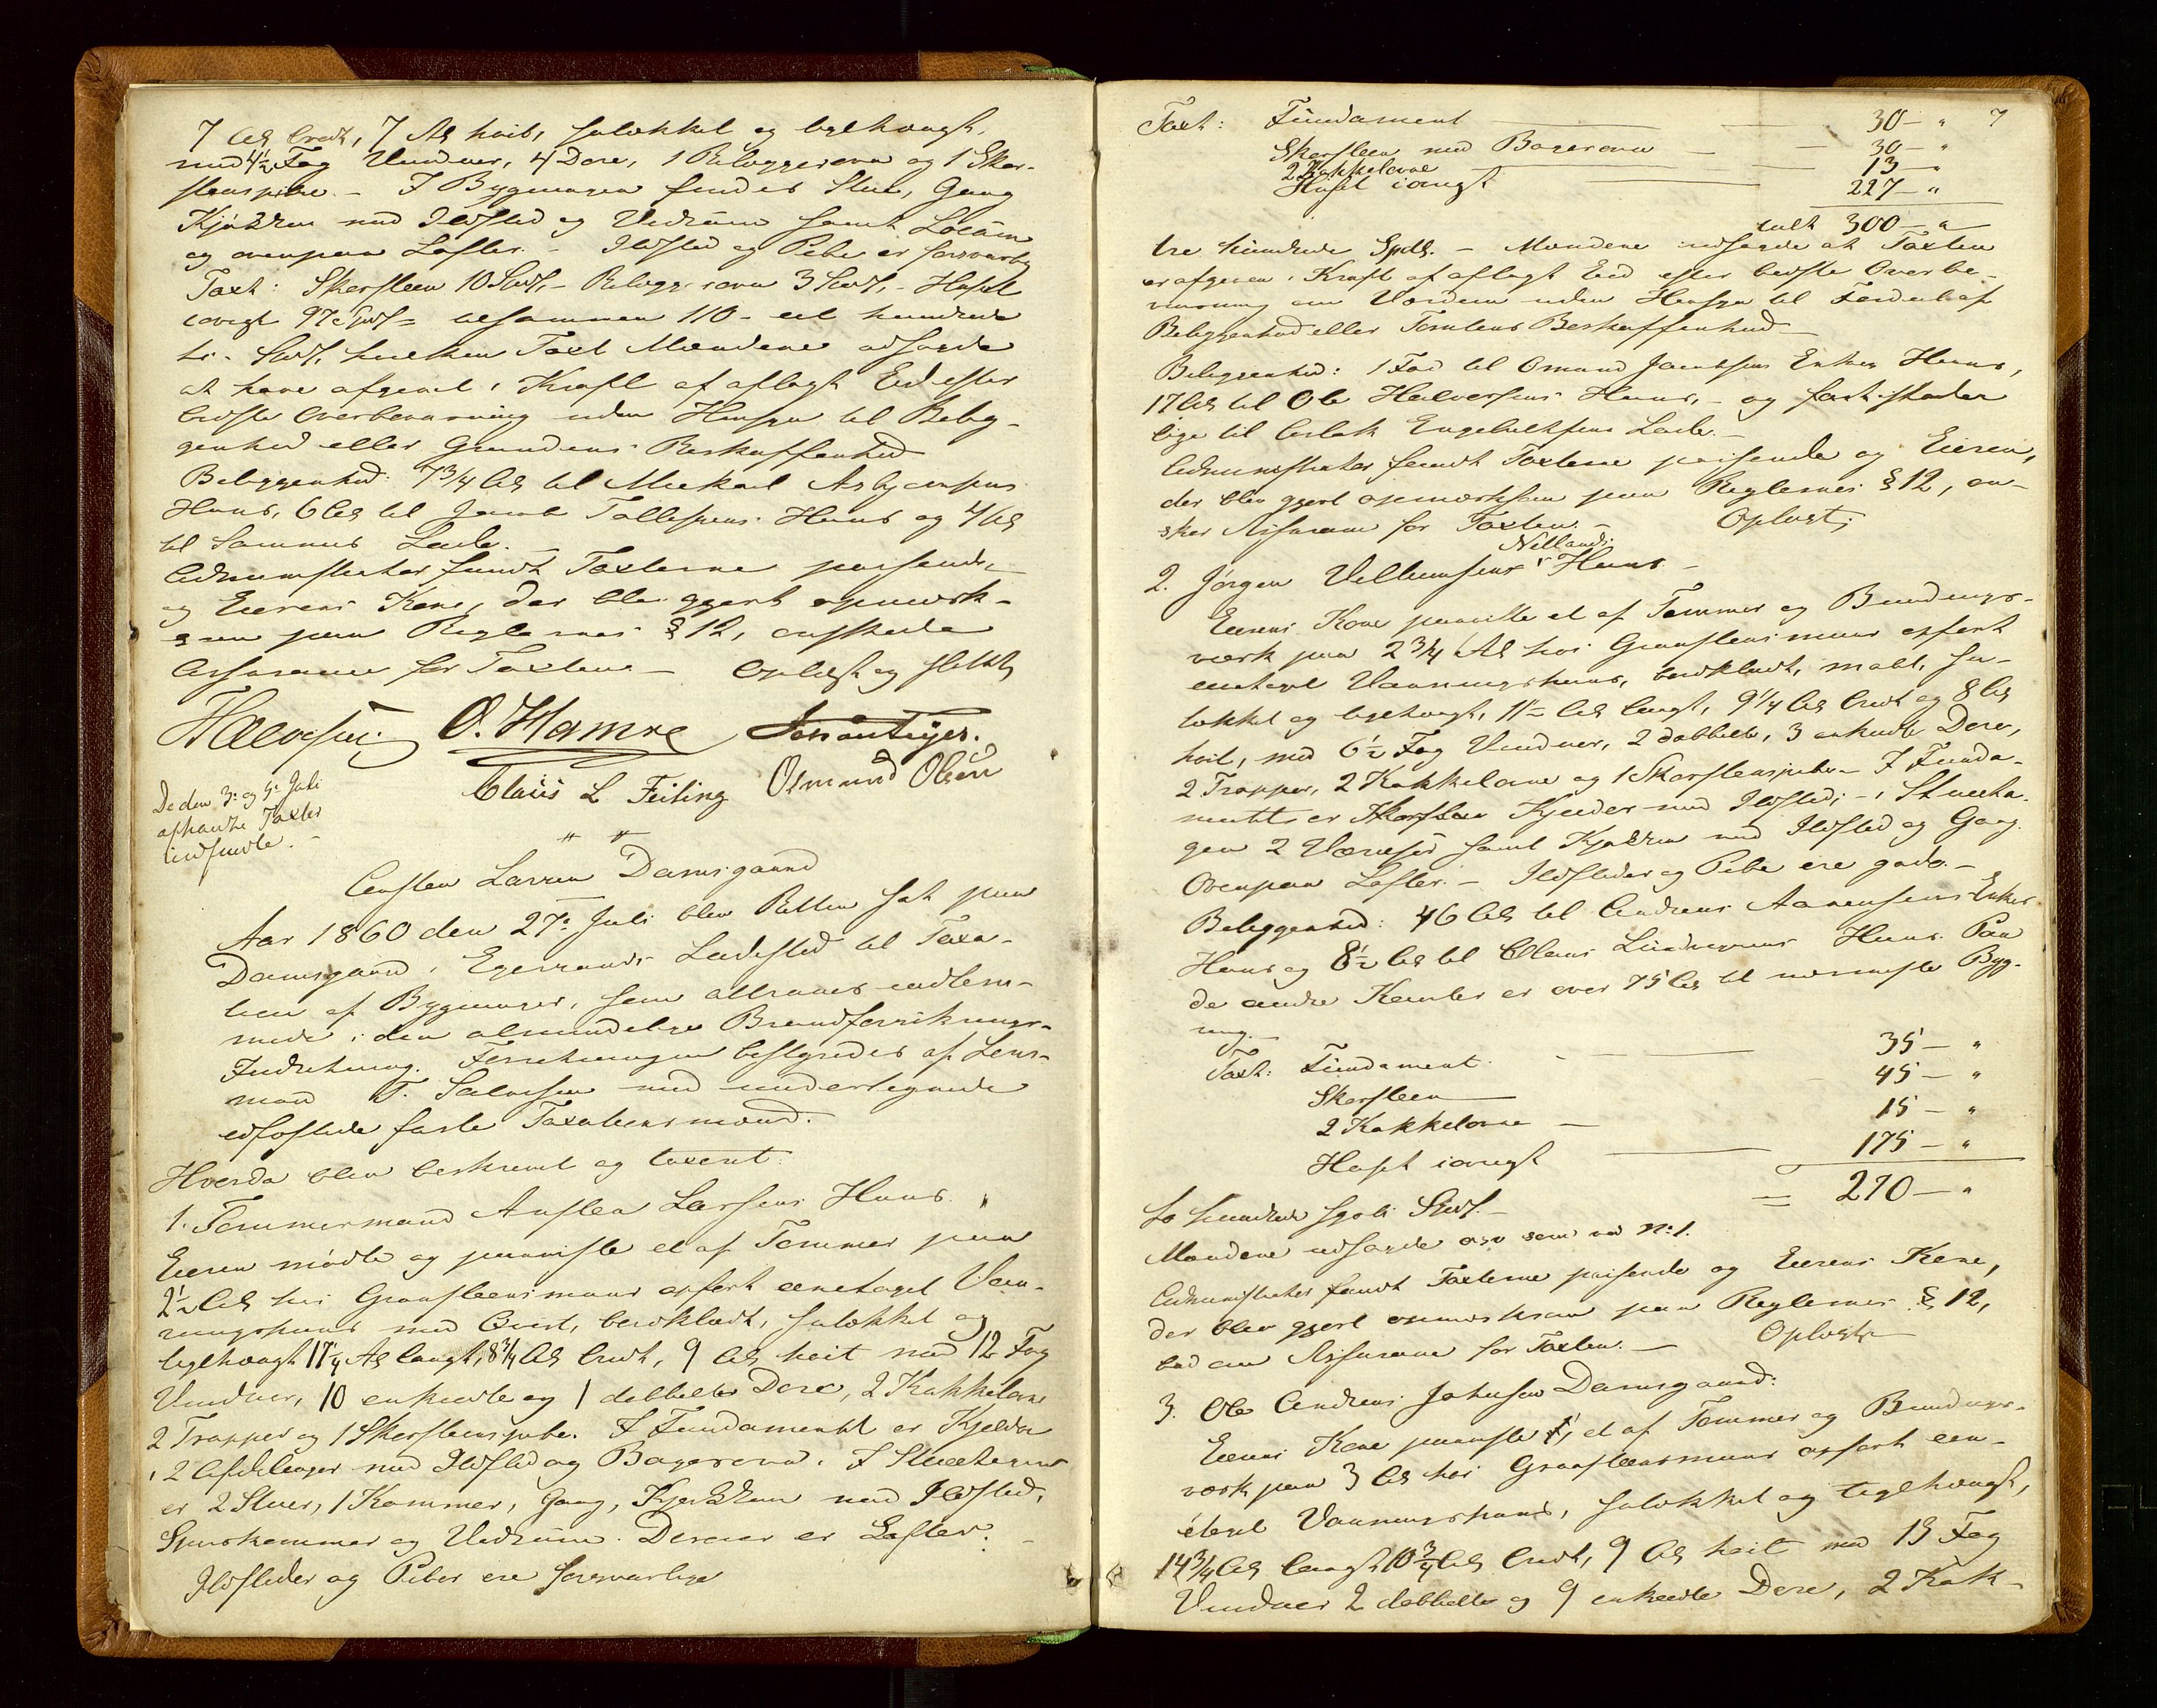 7 Al bredt, 7 Al høit, sulokket og teglhængt,
med 4½ Fag Vinduer, 4 Døre, 1 Bilæggerovn og 1 Skor-
stenspibe. – I Bygningen findes Stue, Gang
Kjøkken med Ildsted og Vedrum samt
og ovenpaa Lofter. – Ildsted og Pibe er forsvarlig
Taxt: Skorsteen 10 Spd, – Bilæggerovn 3 Spd, – Huset
iøvrigt 97 Spd = tilsammen 110 – eet hundrede
ti – Spd, hvilken Taxt Mændene udsagde
at have afgivet i Kraft af aflagt Eed efter
bedste Overbeviisning uden Hensyn til Belig-
genhed eller Grundens Beskaffenhed
Beliggenhed: 7¾ Al til Mickal Asbjørnsens
Huus, 6 Al til Jacob Tollefsens Huus og 4 Al
til Sammes Lade. –
Administrator fandt Taxterne passende
og Eierens Kone, der blev gjort opmærk-
som paa Reglernes § 12, ønskede
Assurance for Taxtene – Oplæst og sluttet
Halvorsen O. Hamre
Claus L. Feiling Osmund Olsen
De den 3: og 4: Juli
afholdte Taxter
indsendte. –
" "
Austen Larsen Damsgaard
Aar 1860 den 27: Juli blev Retten sat paa
Damsgaard i Egersunds Ladested til Taxa-
tion af Bygninger, som attraaes indlem-
mede i den almindelige Brandforsikrings-
Indretning. Forretningen bestyredes af Lens-
mand T. Salvesen med undertegnede
edfæstede faste Taxationsmænd.
Hvorda blev beskrevet og taxeret:
1. Tømmermand Austen Larsens Huus.
Eieren mødte og paaviste et af Tømmer paa
2½ Al høi Graasteensmuur opført eenetages Vaa-
ningshuus med Qvist, bordklædt, sulokket og
teglhængt 11¼ Al langt, 8¾ Al bredt, 9 Al høit med 12 Fag
Vinduer, 10 enkelte og 1 dobbelte Døre, 2 Kakkelovne
2 Trapper og 1 Skorsteenspibe. I Fundamentet er Kjelder
i 2 Afdelinger med Ildsted og Bagerovn. I Stueetagen
er 2 Stuer, 1 Kammer, Gang, Kjøkken med Ildsted,
Spiiskammer og Vedrum. Derover er Lofter. –
Ildsteder og Piber ere forsvarlige
7
Taxt: Fundament 30 – "
Skorsteen med Bagerovn 30 – "
2 Kakkelovne 13 – "
Huset iøvrigt 227 – "
talt 300 – "
tre hundrede Spdlr. – Mændene udsagde at Taxten
er afgiven i Kraft af aflagt Eed efter bedste Overbe-
viisning om Værdien uden Hensyn til Fordeel af
Beliggenhed eller Tomtens Beskaffenhed
Beliggenhed: 1 Fod til Omund Jacobsens Enkes Huus,
17 Al til Ole Halvorsens Huus, – og
lige til Aslak Engelbretsens Lade. –
Administrator fandt Taxterne passende og Eieren,
der blev gjort opmærksom paa Reglernes § 12, øn-
sker Assurance for Taxten. – Oplæst;
2. Jørgen Villumsens Netlands Huus –
Eierens Kone paaviste et af Tømmer og Bindings-
værk paa 2¾ Al høi Graasteensmuur opført
eenetages Vaaningshuus, bordklædt, malt, su-
lokket og teglhængt, 11½ Al langt, 9¼ Al bredt og 8 Al
høit, med 6½ Fag Vinduer, 2 dobbelte, 3 enkelte Døre,
2 Trapper, 2 Kakkelovne og 1 Skorsteenspibe. I Funda-
mentet er Skorsteen Kjelder med Ildsted; – i Stueeta-
gen 2 Værelser samt Kjøkken med Ildsted og Gang.
Ovenpaa Lofter. – Ildsteder og Pibe ere gode. –
Beliggenhed: 46 Al til Andreas Aanensens Enkes
Huus og 8½ Al til Claus Lindøens Huus. Paa
de andre Kanter er over 75 Al til nærmeste Byg-
ning. –
Taxt: Fundament 35 – "
Skorsteen 45 – "
2 Kakkelovne – 15 – "
Huset iøvrigt 175 – "
= 270 – "
to hundrede sytti Spd. –
Mændene udsagde osv som ved No 1.
Administrator fandt Taxterne passende og Eierens Kone,
der blev gjort opmærksom paa Reglernes § 12,
bad om Assurance for Taxten. – Oplæst
3. Ole Andreas Johnsen Damsgaard:
Eierens Kone paaviste et af Tømmer og Bindings-
værk paa 3 Al høi Graasteensmuur opført een-
etages Vaaningshuus, sulokket og teglhængt,
14¾ Al langt 10¾ Al bredt, 9 Al høit med 13 Fag
Vinduer 2 dobbelte og 9 enkelte Døre, 2 Kak-